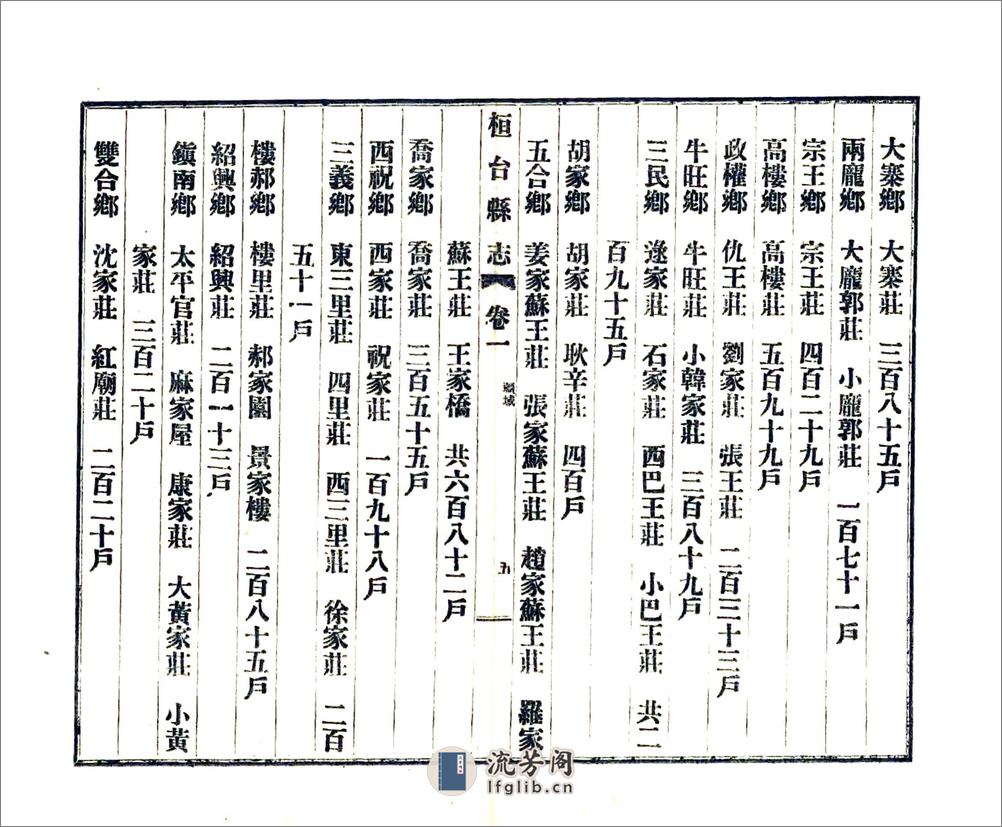 大寨鄉　大寨莊　三百八十五戶
兩龐鄉　大龐郭莊　小龐郭莊　一百七十一戶
宗王鄉　宗王莊　四百二十九戶
高樓鄉　高樓莊　五百九十九戶
政權鄉　仇王莊　劉家莊　張王莊　二百三十三戶
牛旺鄉　牛旺莊　小韓家莊　三百八十九戶
三民鄉　逯家莊　石家莊　西巴王莊　小巴王莊　共二
百九十五戶
胡家鄉　胡家莊　耿辛莊　四百戶
五合鄉　姜家蘇王莊　張家蘇王莊　趙家蘇王莊　羅家
桓台縣志　卷一　疆域　五
蘇王莊　王家橋　共六百八十二戶
喬家鄉　喬家莊　三百五十五戶
西祝鄉　西家莊　祝家莊　一百九十八戶
三義鄉　東三里莊　四里莊　西三里莊　徐家莊　二百
五十一戶
樓郝鄉　樓里莊　郝家園　景家樓　二百八十五戶
紹興鄉　紹興莊　二百一十三戶
鎮南鄉　太平官莊　麻家屋　康家莊　大黃家莊　小黃
家莊　三百二十戶
雙合鄉　沈家莊　紅廟莊　二百二十戶
流芳阁
lfglib.cn